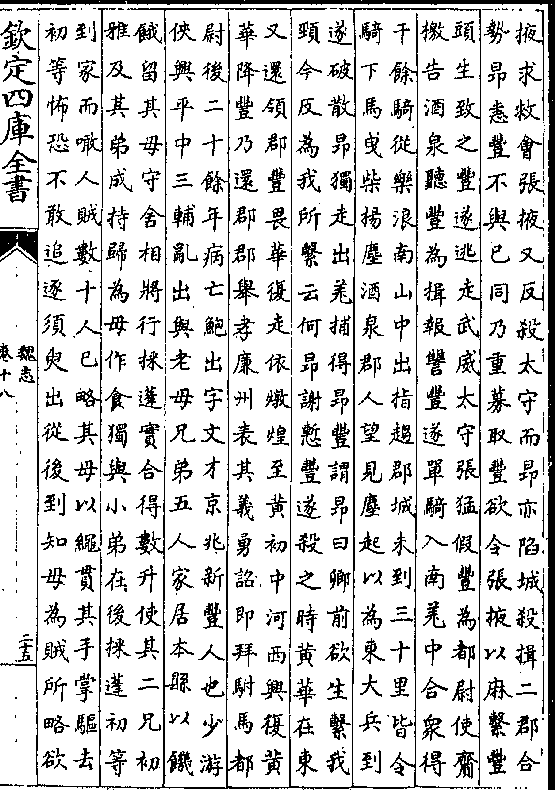 掖求救會張掖又反殺太守而昂亦陷城殺揖二郡合
勢昂恚豐不與己同乃重募取豐欲令張掖以麻繫豐
頭生致之豐遂逃走武威太守張猛假豐為都尉使齎
檄告酒泉聽豐為揖報讐豐遂單騎入南羌中合衆得
千餘騎從樂浪南山中出指趨郡城未到三十里皆令
騎下馬曳柴揚塵酒泉郡人望見塵起以為東大兵到
遂破散昂獨走出羌捕得昂豐謂昂曰卿前欲生繫我
頸今反為我所繫云何昂謝慙豐遂殺之時黃華在東
又還領郡豐畏華復走依燉煌至黃初中河西興復黃
華降豐乃還郡郡舉孝廉州表其義勇詔即拜駙馬都
尉後二十餘年病亡鮑出字文才京兆新豐人也少游
俠興平中三輔亂出與老母兄弟五人家居本縣以饑
餓留其母守舍相將行採蓬實合得數升使其二兄初
雅及其弟成持歸為母作食獨與小弟在後採蓬初等
到家而噉人賊數十人已略其母以繩貫其手掌驅去
初等怖恐不敢追逐須臾出從後到知母為賊所略欲
欽定四庫全書
魏志
卷十八
二十五